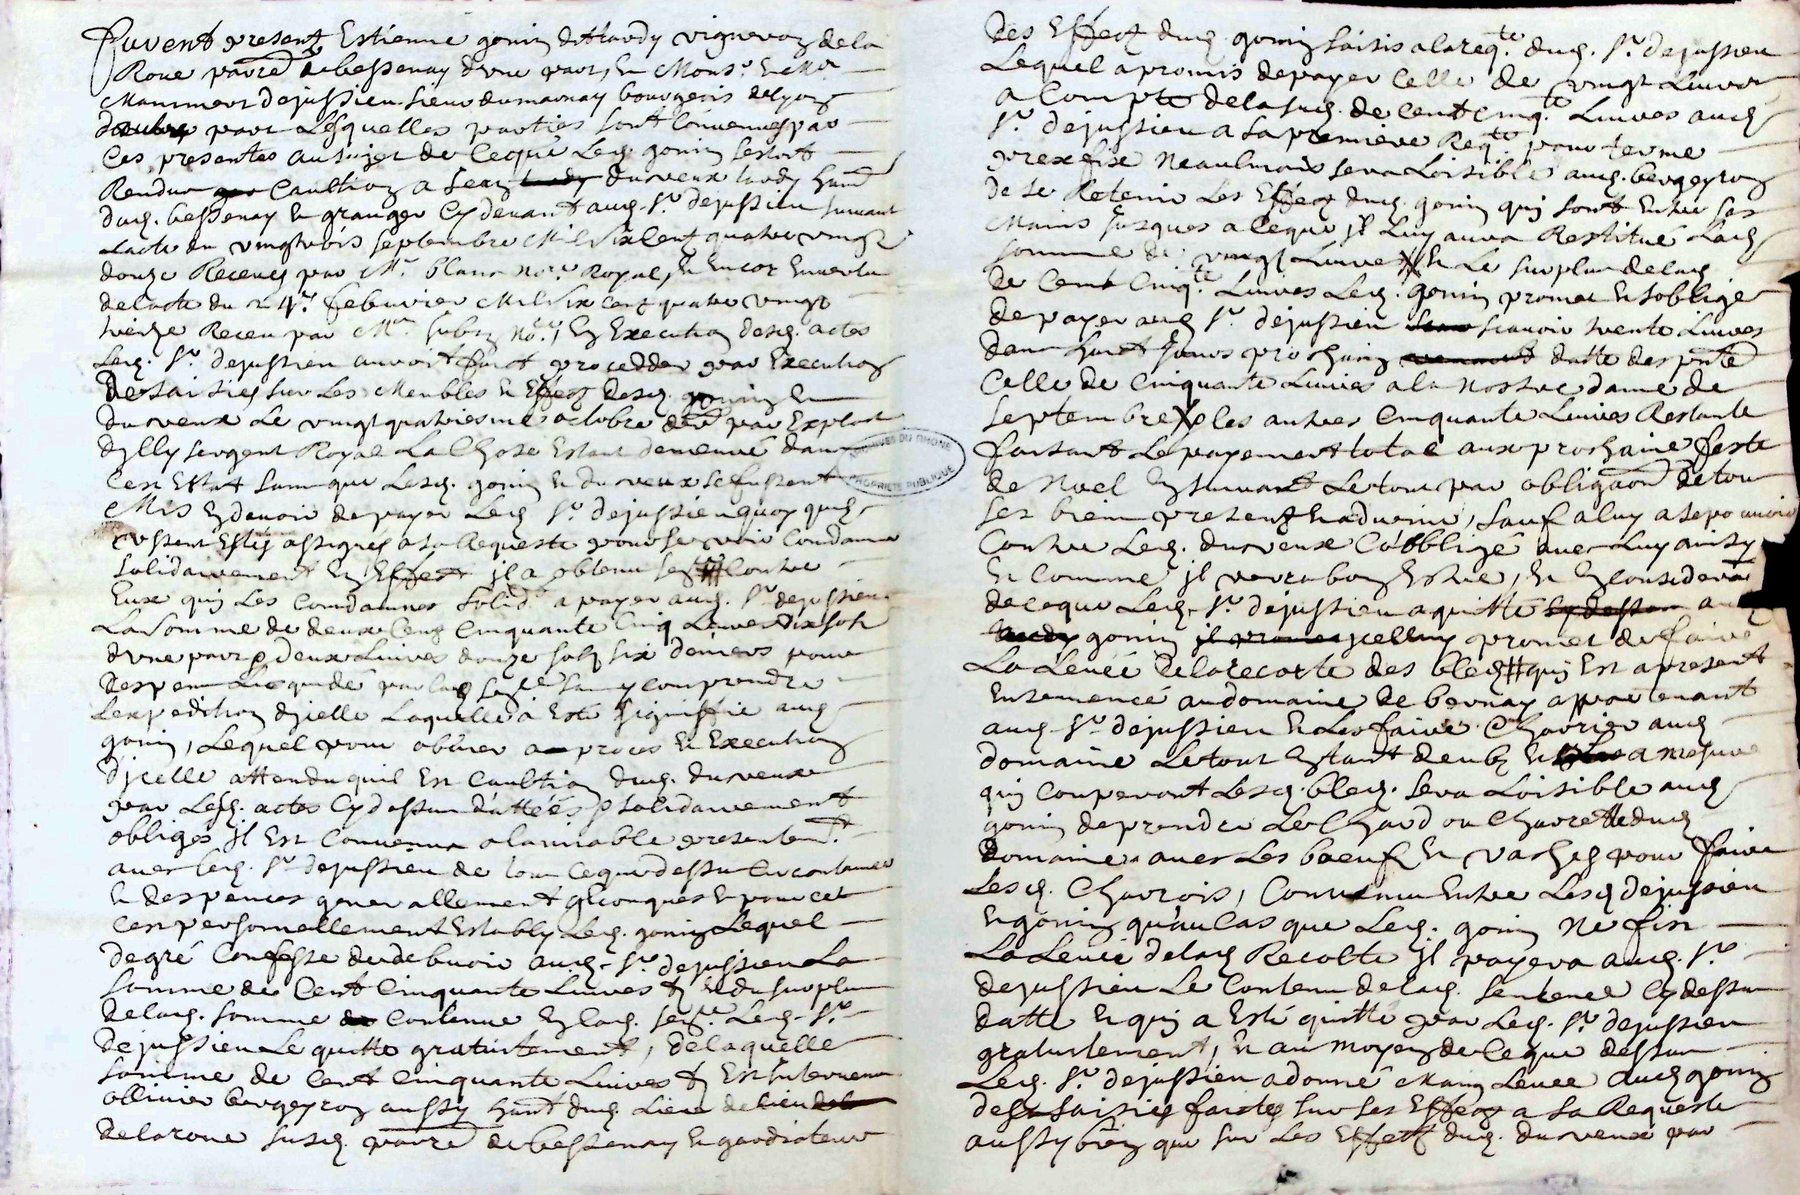 furent presents Estienne gonin dit tardy vigneron de la
Roue paroisse de bessenay d'une part, Et Mons.r Et M.e
dejussieu Sieur dumarnay bourgeois de lyon
d'autre part Lesquelles parties sont Convenues par
Ces presentes au sujet de Ceque Led. gonin sestoit
Rendue Caultion a Jean duverux tardy habit
dud. bessenay Et granger Cy devant aud. S.r dejussieu suivant
Lacte du vingt trois septembre Mil Six Cent quatre vingt
douze Receus par M.e blanc no.re Royal, Et Encor En vertu
de lacte du 24.e febvrier Mil Six cent quatre vingt
treize Receu par M.e no.re, En Execution desd. actes
Led. S.r dejussieu auroit fait procedder par Execution
De saisies sur Les Meubles Et Effects desd. gonin Et
duverux Le vingt quatriesme octobre par Exploit
d'illy sergent Royal La Chose Estant demeuré dans
Cest Estat sans que Lesd. gonin Et duverux se fussent
Mis En devoir de payer Led. S.r dejussieu quoy quils
Eussent Estés assignes a sa Requeste pour se voir Condamner
Solidairement En Effect il a obtenu Contre
Eux qui Les Condamnes solid. a payer aud. S.r dejussieu
La Somme de deux Cens Cinquante Cinq Livres dix sols
d'une part, deux Livres douze sols six deniers pour
despens Liquidé par lad. sans y comprendre
Lexpedition d'icelle Laquelle a Esté Signiffié aud.
gonin, Lequel pour obvier a proces Et Execution
d'icelle attendu quil Est Caultion dud. duverux
par Lesd. actes Cy dessus dattées solidairement
obligés Il Est Convenu a lamiable presentem.t
avec Led. S.r dejussieu de tout Ceque dessus Circonstances
Et despences generallement q̃lconques Et pour cet
Cest personnellement Estably Led. gonin Lequel
de gré Confesse de debvoir aud. S.r dejussieu La
Somme de Cent Cinquante Livres Et du surplus
de lad. somme Contenue En lad. sen.ce Led. S.r
Dejussieu Le quitte gratuitement, de laquelle
Somme de Cent Cinquante Livres Est Intervenu
ollivier bergeyron aussy habit dud. Lieu
de la roue susd. paroisse de bessenay Et gardiateur
Des Effects dud. gonin saisis a la req.te dud. S.r dejussieu
Lequel a promis de payer Celle de vingt Livres
a Compte de la sud. de Cent Cinq.te Livres aud.
S.r dejussieu a sa premiere Req.te pour terme
prexfixe Neaulmoins sera Loisible aud. bergeyron
de se Retenir Les Effects dud. gonin qui sont Entre ses
Mains jusques a Ceque il Luy aura Restitué Lad.
somme de vingt Livres Et Le surplus de lad.
de Cent Cinq.te Livres Led. gonin promet Et soblige
de payer aud. S.r dejussieu scavoir trente Livres
dans huict Jours prochains datte des pntes
Celle de Cinquante Livres a la Nostre dame de
Septembre Et les autres Cinquante Livres Restante
faisant Le payement total aux prochaine feste
de Noel En suivant Le tout par obligaon de tous
Ses biens presents Et advenir, Sauf a luy a se pourvoir
Contre Led. duverux Coobbligé avec Luy ainsy
Et Comme il verra bon Estre, Et En Consideraon
de ceque Led. S.r dejussieu a quitté aud.
gonin icelluy promet de faire
La Levée De la recorte des bleds qui Est a present
Ensemencé au domaine de bernay appartenant
aud. S.r dejussieu Et Les faire Charrier aud.
domaine Le tout Estant deub Et a mesure
qui couperont Lesd. bleds. sera Loisible aud.
gonin de prendre Le Chard ou Charrette dud.
Domaine avec Les boeufs Et vaches pour faire
Lesd. Charrois, Convenu Entre Lesd. dejussieu
Et gonin qu'au Cas que Led. gonin Ne fist
La Levée de lad. Recolte il payera aud. S.r
dejussieu Le Contenu de lad. sentence Cy dessus
datte Et qui a Esté quitte par Led. S.r dejussieu
gratuitement, Et au moyen de Ceque dessus
Led. S.r dejussieu a donné Main Levée aud. gonin
des saisies faites sur ses Effects a sa Requeste
aussy bien que sur Les Effects dud. duverux par
ARCHIVES DU RHONE
PROPRIETE PUBLIQUE